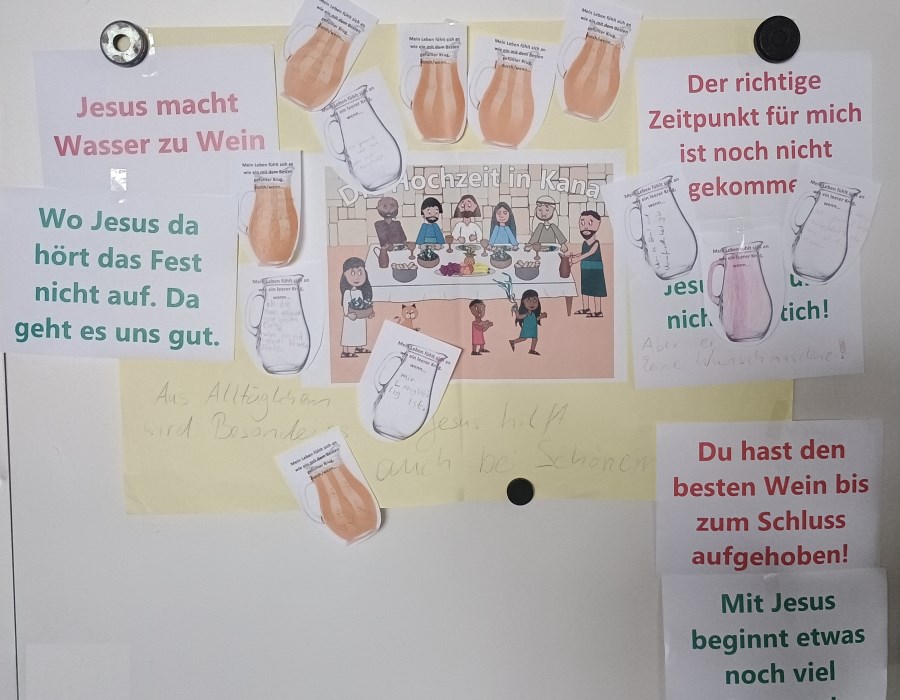 Jesus macht
Wasser zu Wein
Wo Jesus da
hört das Fest
nicht auf. Da
geht es uns gut.
Mein Leben fühlt sich an
wie ein mit dem Besten
gefüllter Krug,
durch/wenn...
Mein Leben fühlt sich an
wie ein mit dem Besten
gefüllter Krug,
durch/wenn...
Mein Leben fühlt sich an
wie ein mit dem Besten
gefüllter Krug,
durch/wenn...
Mein Leben fühlt sich an
wie ein mit dem Besten
gefüllter Krug,
durch/wenn...
Mein Leben fühlt sich an
wie ein leerer Krug,
wenn...
Mein Leben fühlt sich an
wie ein mit dem Besten
gefüllter Krug,
durch/wenn...
Mein Leben fühlt sich an
wie ein leerer Krug,
wenn...
Hochzeit in Kana
Mein Leben fühlt sich an
wie ein leerer Krug,
wenn...
mir
Langwei
lig ist
Aus Alltäglichem
wird Besonderes
Jesus hilft
auch bei Schönem
Mein Leben fühlt sich an
wie ein mit dem Besten
gefüllter Krug,
durch/wenn...
Der richtige
Zeitpunkt für mich
ist noch nicht
gekomme
Mein Leben fühlt sich an
wie ein leerer Krug,
wenn...
Mein Leben fühlt sich an
wie ein leerer Krug,
wenn...
Mein Leben fühlt sich an
wie ein leerer Krug,
wenn...
Jesu
nich tich!
Aber er
keine Wunschmaschine!
Du hast den
besten Wein bis
zum Schluss
aufgehoben!
Mit Jesus
beginnt etwas
noch viel